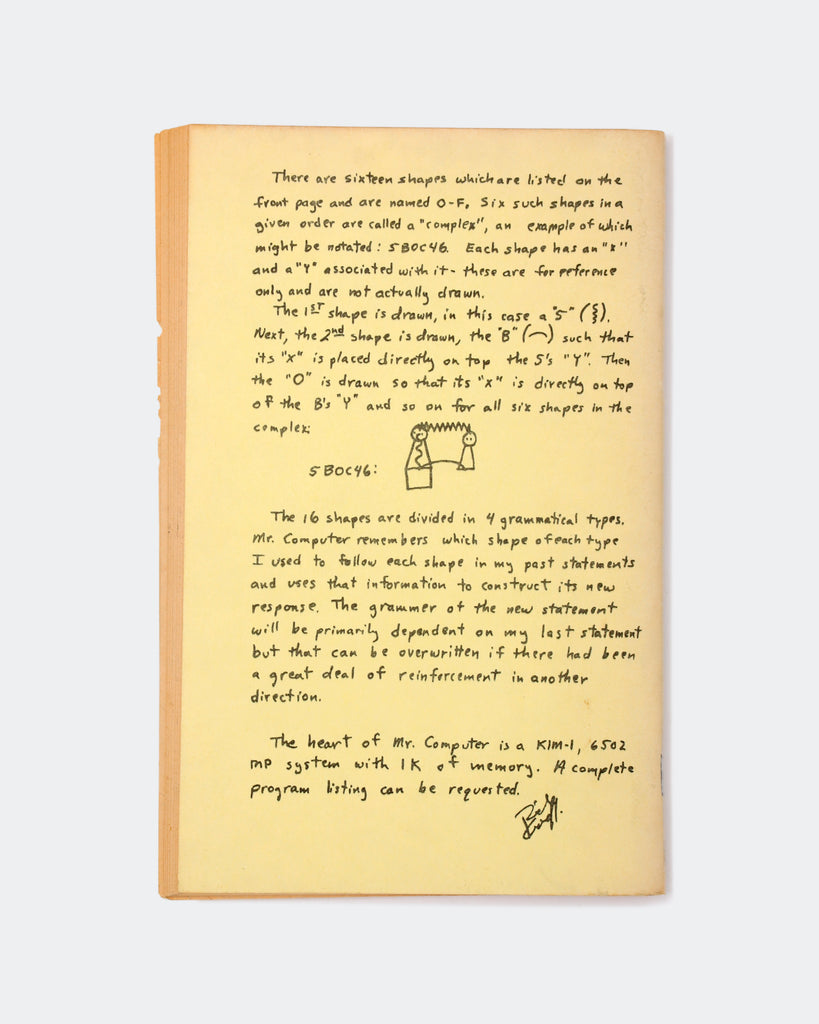 There are sixteen shapes which are listed on the
front page and are named O-F. Six such shapes in a
given order are called a "complex", an example of which
might be notated: 5BOC46. Each shape has an "x"
and a "Y" associated with it - these are for reference
only and are not actually drawn.
The 1ST shape is drawn, in this case a "5" ( ).
Next, the 2nd shape is drawn, the "B" ( ) such that
its "x" is placed directly on top the 5's "Y". Then
the "O" is drawn so that its "x" is directly on top
of the B's "Y" and so on for all six shapes in the
complex:
5BOC46:
The 16 shapes are divided in 4 grammatical types.
Mr. Computer remembers which shape of each type
I used to follow each shape in my past statements
and uses that information to construct its new
response. The grammer of the new statement
will be primarily dependent on my last statement
but that can be overwritten if there had been
a great deal of reinforcement in another
direction.
The heart of Mr. Computer is a KIM-1, 6502
MP system with 1K of memory. A complete
program listing can be requested.